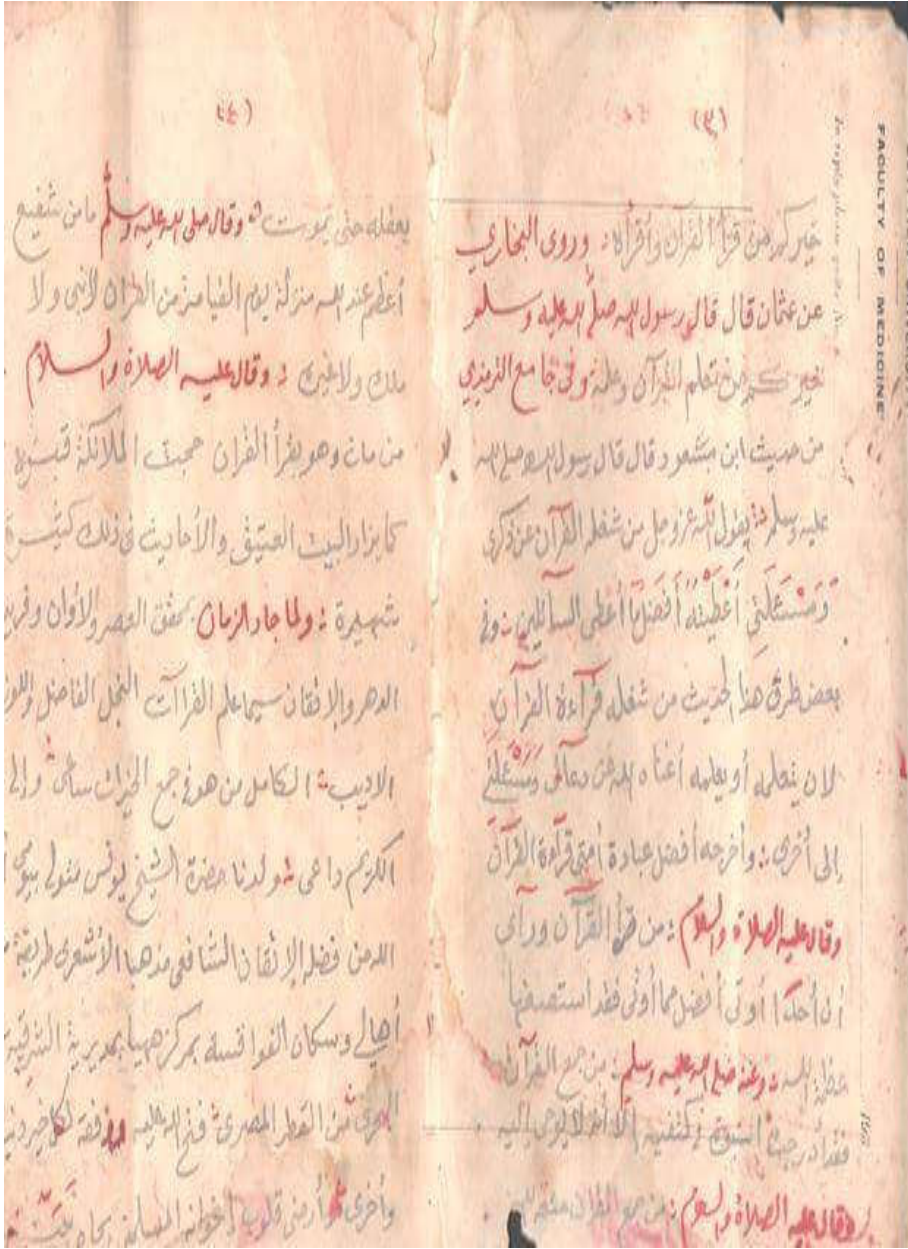 (٣)
خيركم من قرأ القرآن وأقرأه وروى البخاري
عن عثمان قال قال رسول الله صلى الله عليه وسلم
خيركم من تعلم القرآن وعلمه وفى جامع الترمذي
من حديث ابن مسعود قال قال رسول الله صلى الله
عليه وسلم يقول الله عز وجل من شغله القرآن عن ذكرى
وَمَسْئَلَتِي أَعْطَيْتُهُ أَفْضَلَ مَا أعطى السآئلين وفى
بعض طرق هذا الحديث من شغله قرآءة القرآن
لان يتعلمه أو يعلمه أغناه الله عن دعائى ومسئلتي
إلى أخرى وأخرجه أفضل عبادة أمتي قرآءة القرآن
وقال عليه الصلاة والسلام من قرأ القرآن ورأى
أن أحدًا أوتى أفضل مما أوتى فقد استصغر ما
عظم الله وعنه صلى الله عليه وسلم من جمع القرآن
فقد أدرجت النبوة كتفيه إلا أنه لا يوحى إليه
وقال عليه الصلاة والسلام من جمع القرآن
(٤)
بعقله حتى يموت وقال صلى الله عليه وسلم ما من شفيع
أعظم عند الله منزلة يوم القيامة من القرآن لا نبى ولا
ملك ولا غيره وقال عليه الصلاة والسلام
من مات وهو يقرأ القرآن حجت الملائكة قبره
كما يزار البيت العتيق والأحاديث فى ذلك كثيرة
شهيرة ولما جاد الزمان بمحقق العصر والأوان وفريد
الدهر والإتقان سيما علم القراآت النجل الفاضل
الاديب الكامل من هو فى جمع الخيرات ساعى وإلى
الكريم داعى ولدنا حضرة الشيخ يونس متولى بيومى
الله من فضله الإتقان الشافعى مذهبا الأشعرى طريقة
أهالى وسكان القواقسة بمركز ههيا بمديرية الشرقية
من القطر المصرى فتح الله عليه لكل خير
وأخرى قلوب اخوانه المسلمين بجاه
FACULTY OF MEDICINE